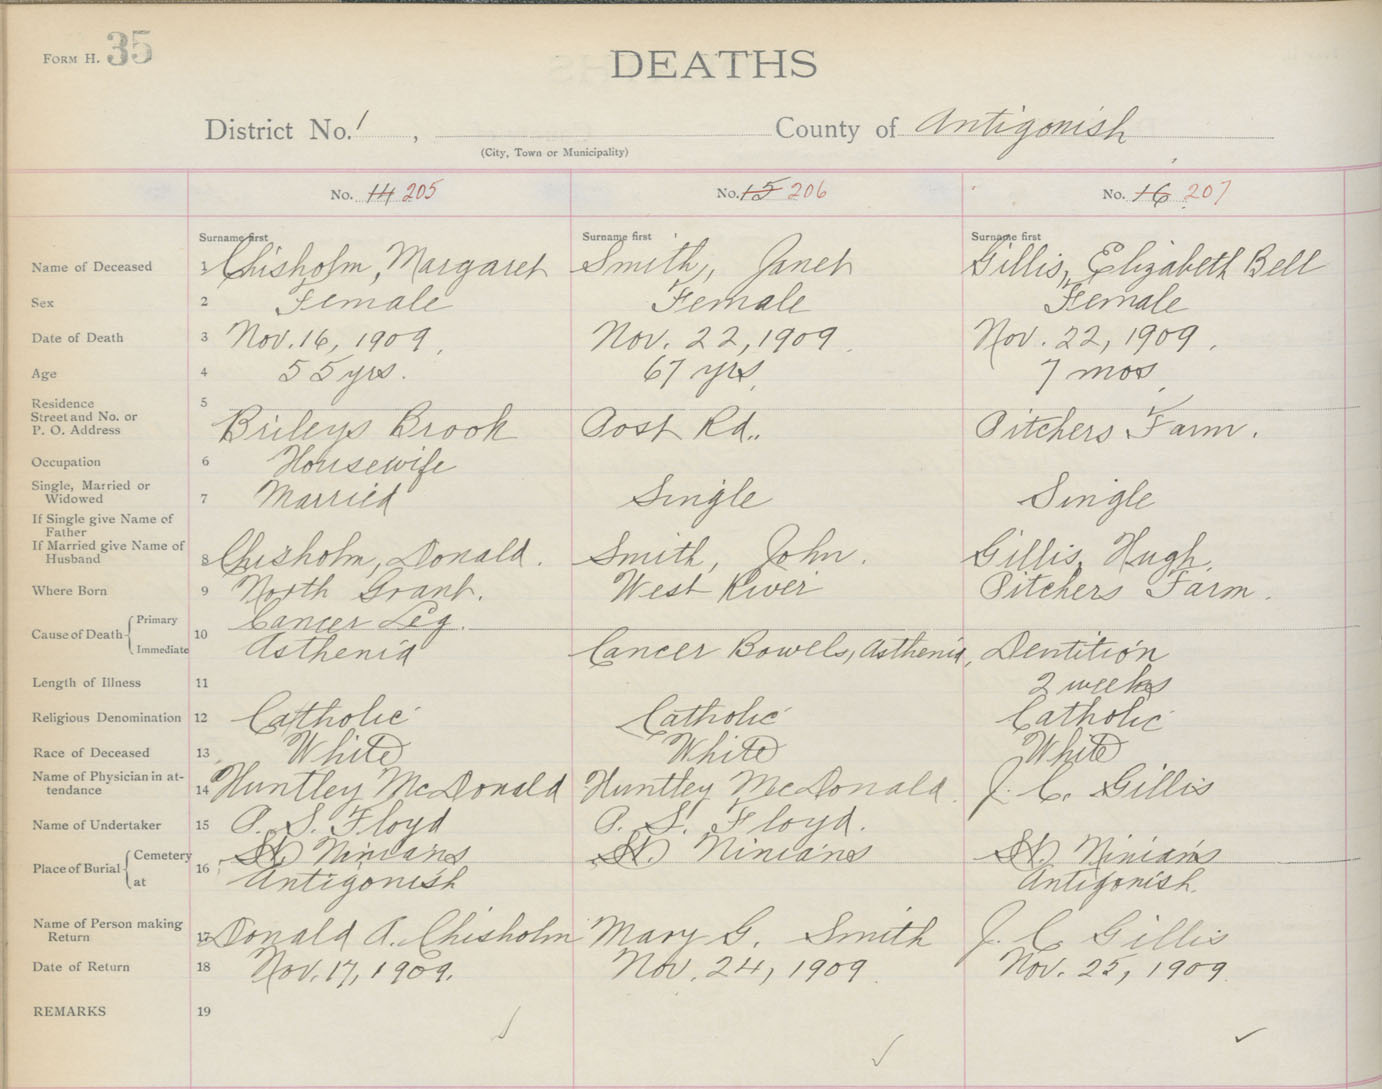 FORM H. 35
DEATHS
District No. 1 , County of Antigonish
(City, Town or Municipality)
No. 14 205 No. 15 206 No. 16 207
Surname first Surname first Surname first
Name of Deceased 1 Chisholm, Margaret Smith, Janet Gillis, Elizabeth Bell
Sex 2 Female Female Female
Date of Death 3 Nov. 16, 1909. Nov. 22, 1909. Nov. 22, 1909.
Age 4 55 yrs. 67 yrs. 7 mos.
Residence 5
Street and No. or
P. O. Address Brileys Brook Post Rd.. Pitchers Farm.
Occupation 6 Housewife
Single, Married or
Widowed 7 Married Single Single
If Single give Name of
Father
If Married give Name of
Husband 8 Chisholm, Donald. Smith, John. Gillis, Hugh.
Where Born 9 North Grant. West River Pitchers Farm.
Cause of Death Primary 10 Cancer Leg.
Immediate Asthenia Cancer Bowels, Asthenia, Dentition
Length of Illness 11 2 weeks
Religious Denomination 12 Catholic Catholic Catholic
Race of Deceased 13 White White White
Name of Physician in at-
tendance 14 Huntley McDonald Huntley McDonald. J. C. Gillis
Name of Undertaker 15 P. S. Floyd P. S. Floyd.
Place of Burial Cemetery 16 St. Ninians St. Ninians St. Ninians
at Antigonish Antigonish.
Name of Person making
Return 17 Donald A. Chisholm Mary G. Smith J. C Gillis
Date of Return 18 Nov. 17, 1909. Nov. 24, 1909. Nov. 25, 1909.
REMARKS 19